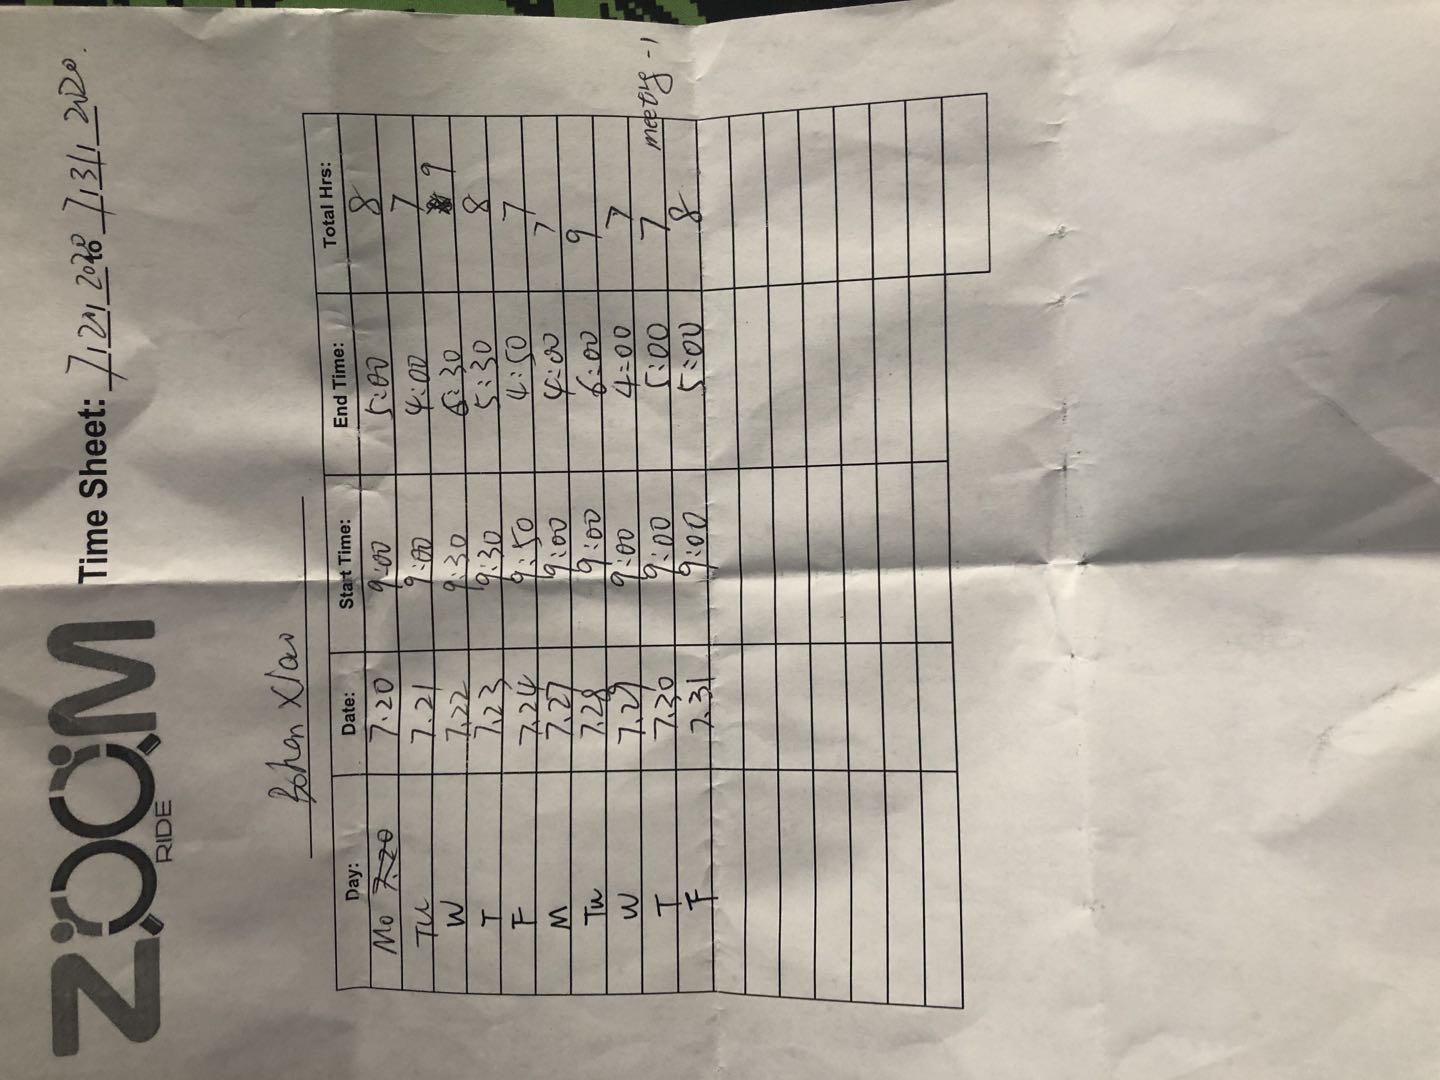 ZOOM
RIDE
Time Sheet: 7/20/2020 to 7/31/2020.
Bohan Xiao
Day: Date: Start Time: End Time: Total Hrs:
Mo 7.20 7.20 9:00 5:00 8
TU 7.21 9:00 4:00 7
W 7.22 9:30 6:30 9
T 7.23 9:30 5:30 8
F 7.24 9:50 4:50 7
M 7.27 9:00 4:00 7
Tu 7.28 9:00 6:00 9
W 7.29 9:00 4:00 7
T 7.30 9:00 5:00 7 meeting -1
F 7.31 9:00 5:00 8